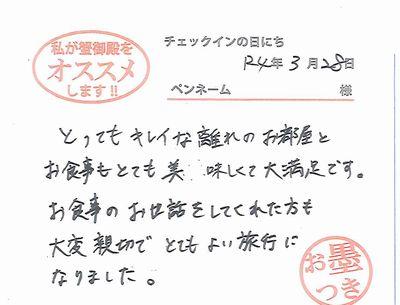 私が蟹御殿を
オススメ
します!!
チェックインの日にち
R4年3月28日
ペンネーム 様
とってもキレイな離れのお部屋と
お食事もとても美 味しくて大満足です。
お食事のお世話をしてくれた方も
大変親切でとてもよい旅行に
なりました。
お墨
つき